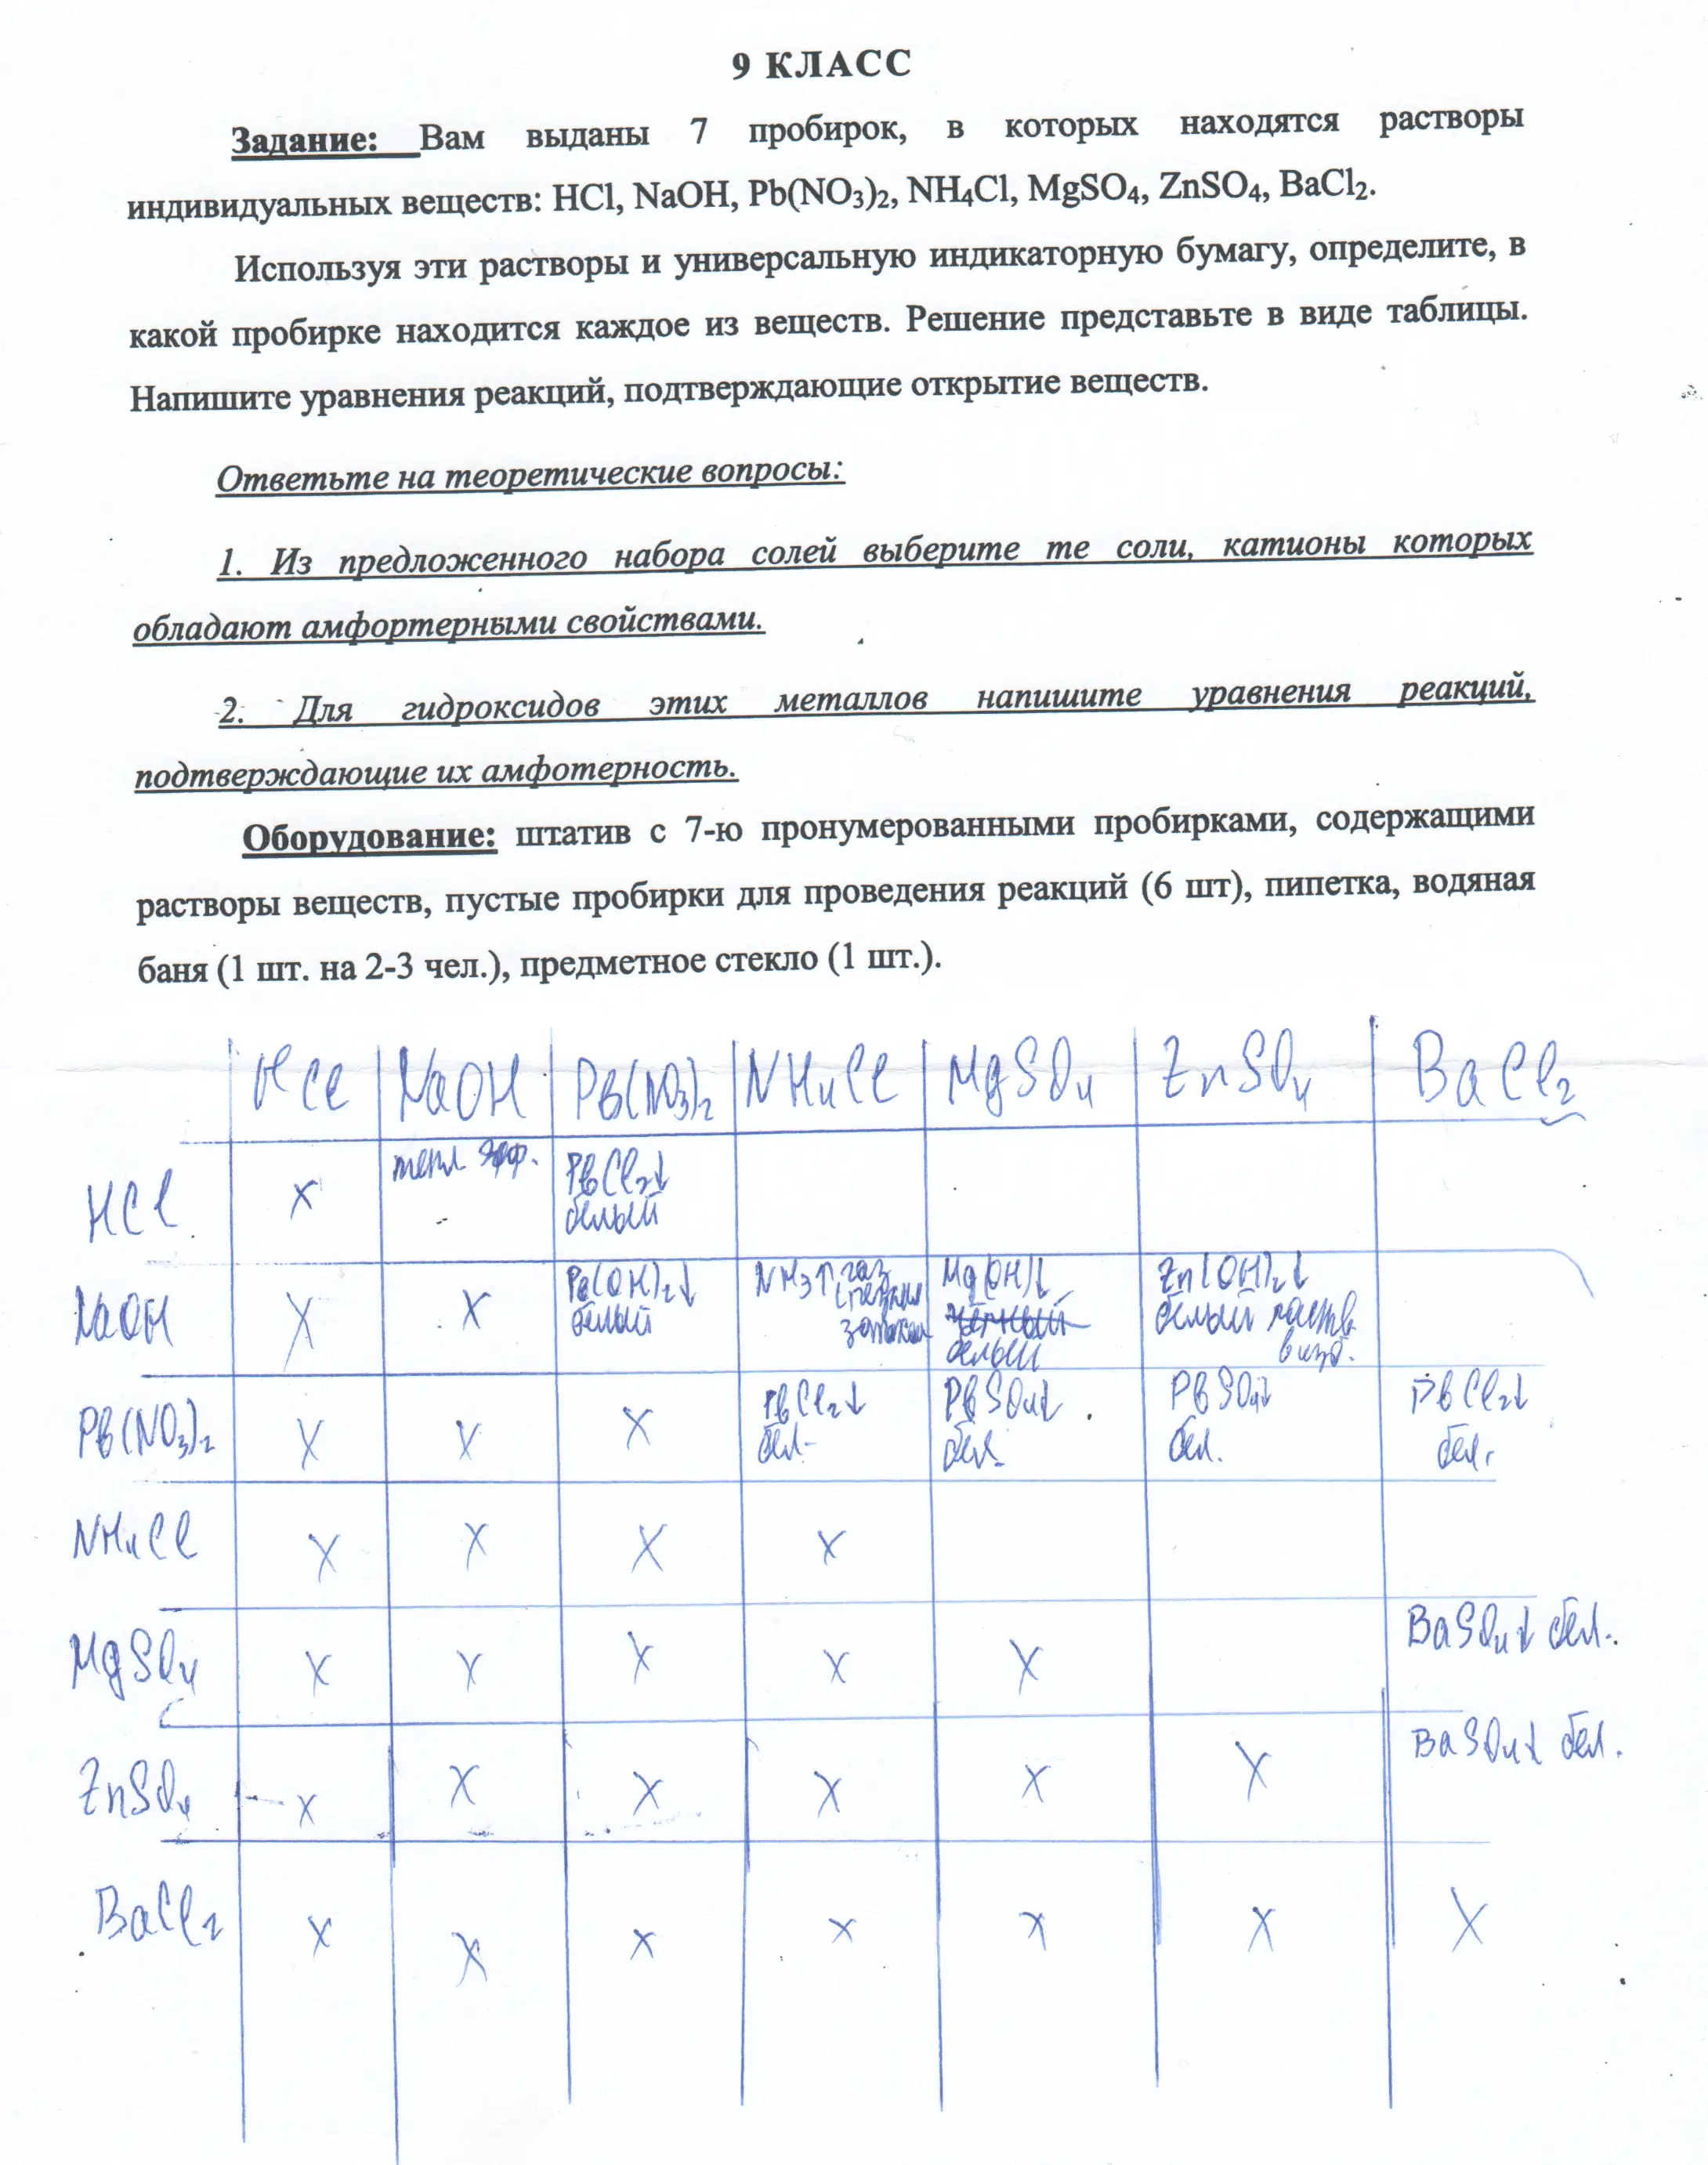 9 КЛАСС
Задание: Вам выданы 7 пробирок, в которых находятся растворы
индивидуальных веществ: HCl, NaOH, Pb(NO₃)₂, NH₄Cl, MgSO₄, ZnSO₄, BaCl₂.
Используя эти растворы и универсальную индикаторную бумагу, определите, в
какой пробирке находится каждое из веществ. Решение представьте в виде таблицы.
Напишите уравнения реакций, подтверждающие открытие веществ.
Ответьте на теоретические вопросы:
1. Из предложенного набора солей выберите те соли, катионы которых
обладают амфортерными свойствами.
2. Для гидроксидов этих металлов напишите уравнения реакций,
подтверждающие их амфотерность.
Оборудование: штатив с 7-ю пронумерованными пробирками, содержащими
растворы веществ, пустые пробирки для проведения реакций (6 шт), пипетка, водяная
баня (1 шт. на 2-3 чел.), предметное стекло (1 шт.).
HCl NaOH Pb(NO₃)₂ NH₄Cl MgSO₄ ZnSO₄ BaCl₂
HCl x тепл. эфф. PbCl₂↓ белый
NaOH x x Pb(OH)₂↓ белый NH₃↑ газ с резким запахом Mg(OH)↓ чёрный белый Zn(OH)₂↓ белый раств. в изб.
Pb(NO₃)₂ x x x PbCl₂↓ бел. PbSO₄↓ бел. PbSO₄↓ бел. PbCl₂↓ бел.
NH₄Cl x x x x
MgSO₄ x x x x x BaSO₄↓ бел.
ZnSO₄ x x x x x x BaSO₄↓ бел.
BaCl₂ x x x x x x x